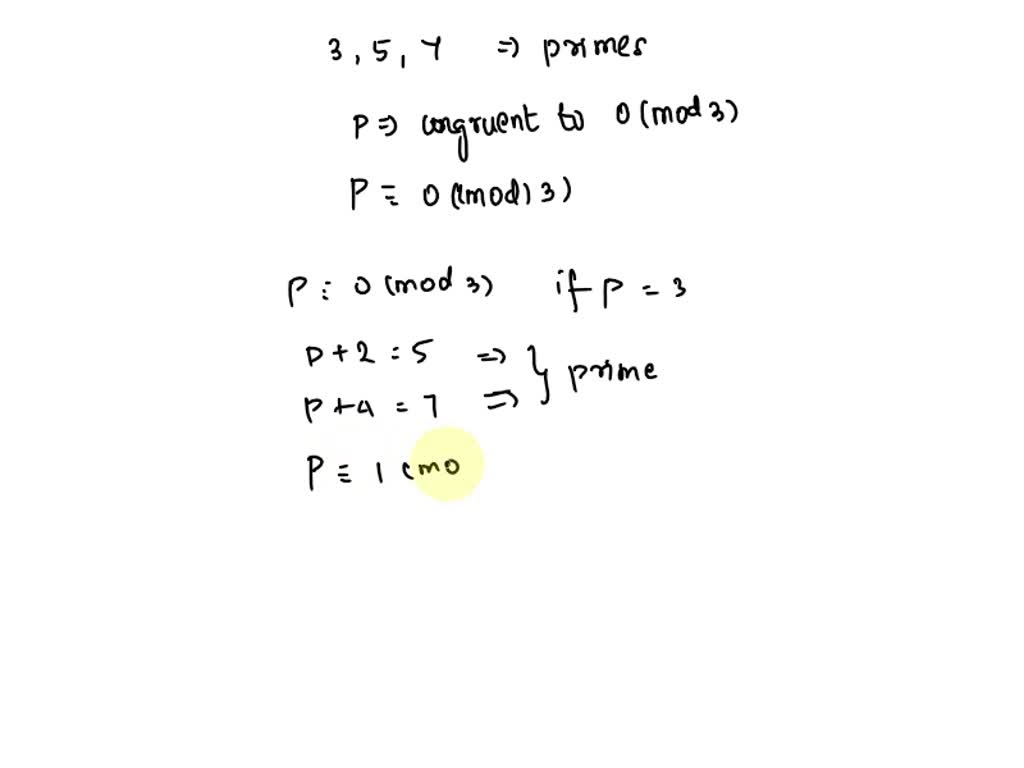 3, 5, 7 => primes
P => congruent to 0 (mod 3)
P ≡ 0 (mod) 3)
P ≡ 0 (mod 3) if P = 3
P + 2 = 5 => } prime
P + 4 = 7 =>
P ≡ 1 (mo